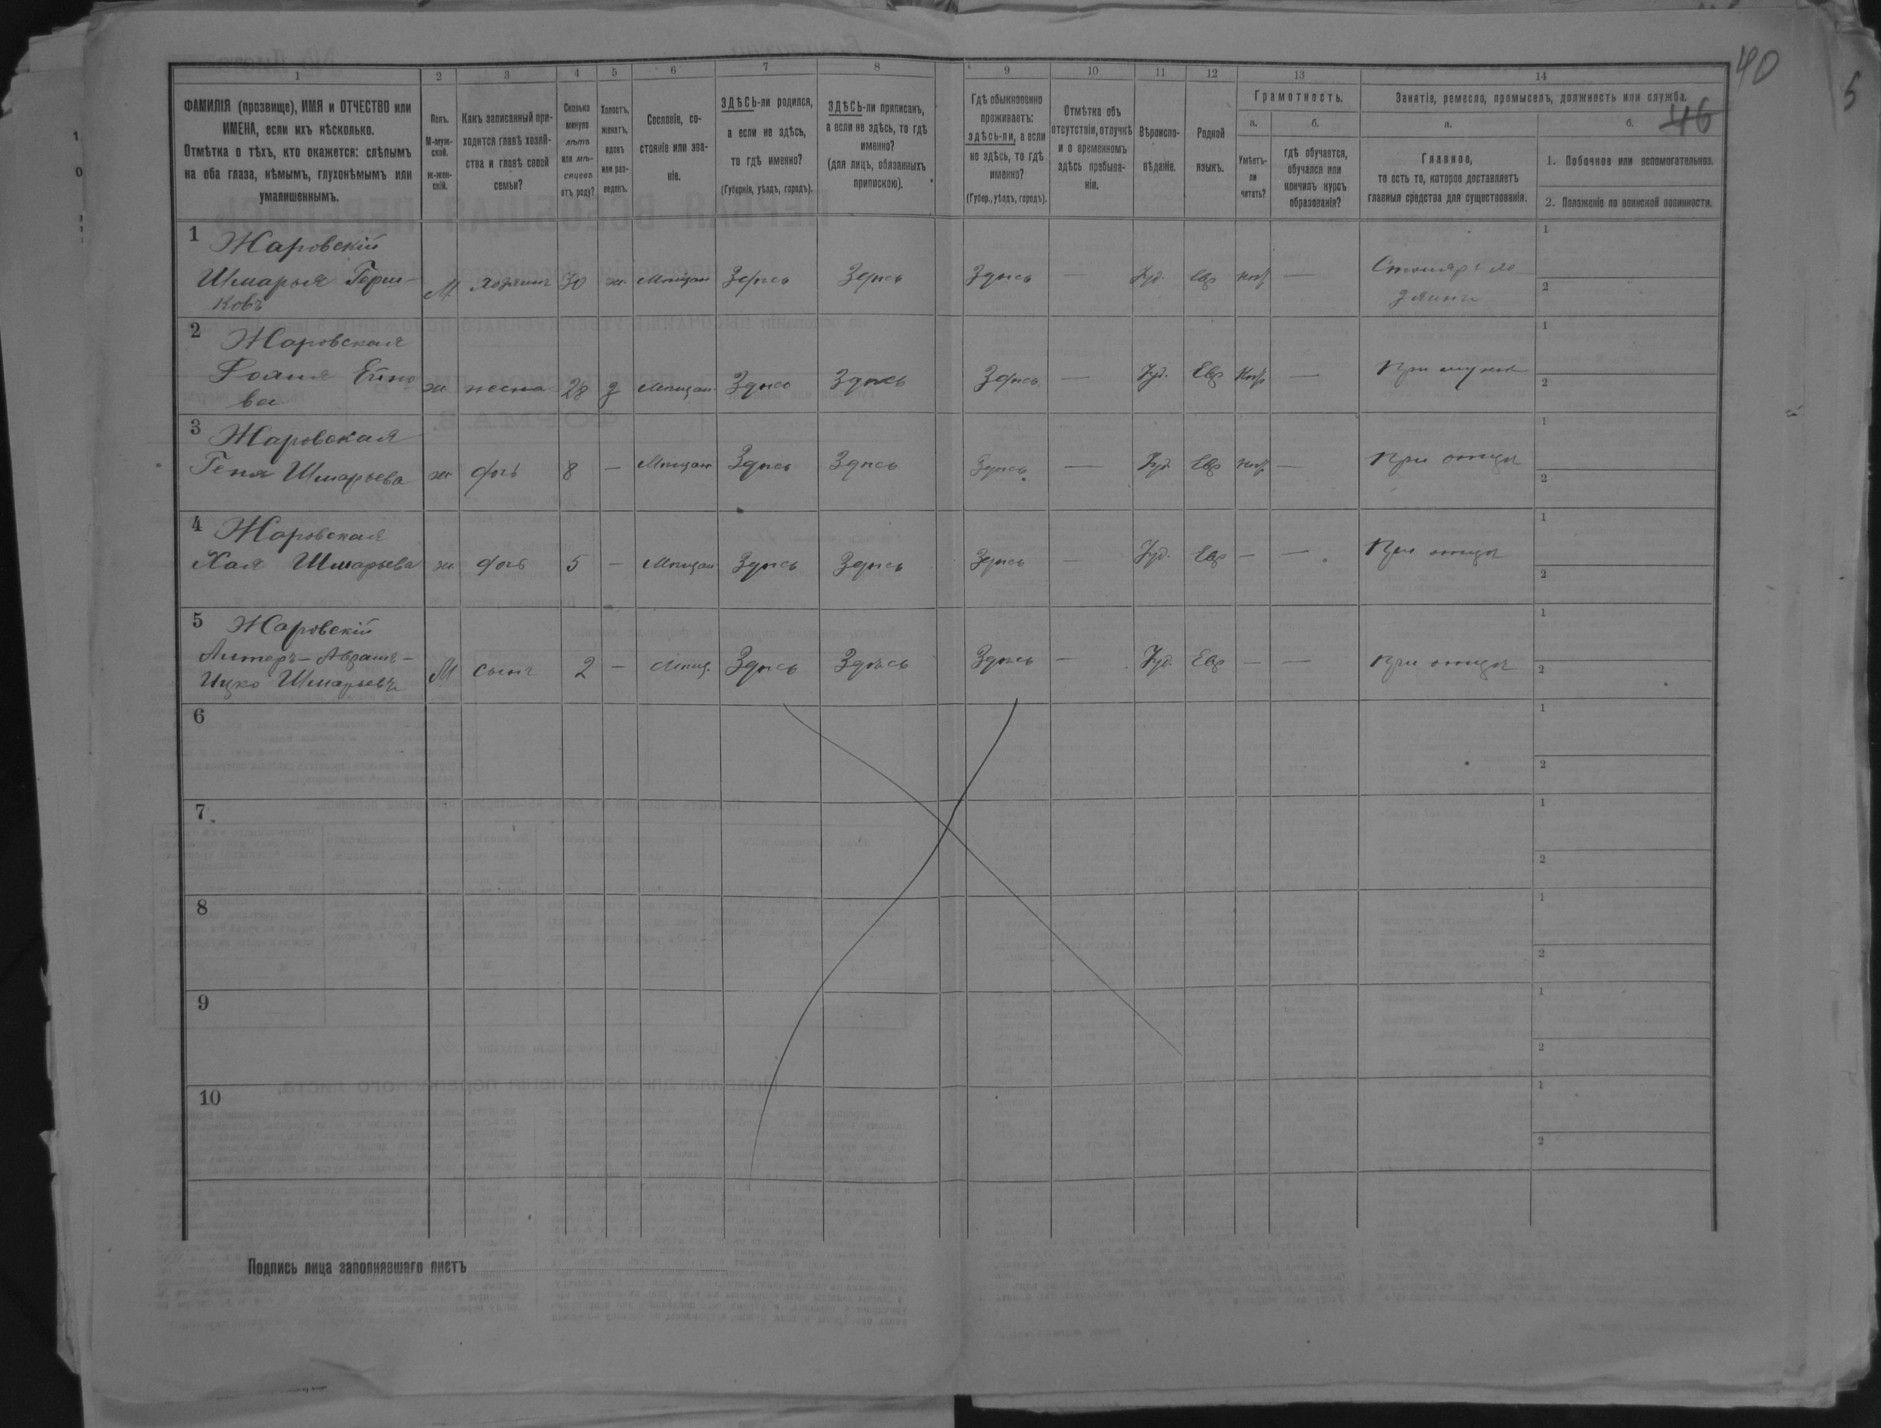 40
5
46
1 2 3 4 5 6 7 8 9 10 11 12 13 14
ФАМИЛІЯ (прозвище), ИМЯ и ОТЧЕСТВО или
ИМЕНА, если ихъ нѣсколько.
Отмѣтка о тѣхъ, кто окажется: слѣпымъ
на оба глаза, нѣмымъ, глухонѣмымъ или
умалишеннымъ.
Полъ.
М-муж-
ской.
ж-жен-
скій.
Какъ записанный при-
ходится главѣ хозяй-
ства и главѣ своей
семьи?
Сколько
минуло
лѣтъ
или мѣ-
сяцевъ
отъ роду?
Холостъ,
женатъ,
вдовъ
или раз-
веденъ.
Сословіе, со-
стояніе или зва-
ніе.
ЗДѢСЬ-ли родился,
а если не здѣсь,
то гдѣ именно?
(Губернія, уѣздъ, городъ).
ЗДѢСЬ-ли приписанъ,
а если не здѣсь, то гдѣ
именно?
(для лицъ, обязанныхъ
припискою).
Гдѣ обыкновенно
проживаетъ:
здѣсь-ли, а если
не здѣсь, то гдѣ
именно?
(Губер., уѣздъ, городъ).
Отмѣтка объ
отсутствіи, отлучкѣ
и о временномъ
здѣсь пребыва-
ніи.
Вѣроиспо-
вѣданіе.
Родной
языкъ.
Грамотность.
а.
Умѣетъ-
ли
читать?
б.
гдѣ обучается,
обучался или
кончилъ курсъ
образованія?
Занятіе, ремесло, промыселъ, должность или служба.
а.
Главное,
то есть то, которое доставляетъ
главныя средства для существованія.
б.
1. Побочное или вспомогательное.
2. Положеніе по воинской повинности.
1 Жаровскій
Шмарья Герш-
ковъ
М хозяинъ 30 ж. Мѣщан Здѣсь Здѣсь Здѣсь — Іуд. Евр —
Столяръ
1
2
2 Жаровская
ва
ж жена 28 Мѣщан Здѣсь Здѣсь Здѣсь — Іуд. Евр — При мужѣ
1
2
3 Жаровская
Геня Шмарьева
ж дочь 8 — Мѣщан Здѣсь Здѣсь Здѣсь — Іуд. Евр — При отцѣ
1
2
4 Жаровская
Хая Шмарьева
ж. дочь 5 — Мѣщан Здѣсь Здѣсь Здѣсь — Іуд. Евр — — При отцѣ
1
2
5 Жаровскій
Алтеръ-Авраам-
Ицко Шмарьевъ
М сынъ 2 — Мѣщ. Здѣсь Здѣсь Здѣсь — Іуд. Евр — — При отцѣ
1
2
6
1
2
7
1
2
8
1
2
9
1
2
10
1
2
Подпись лица заполнявшаго листъ